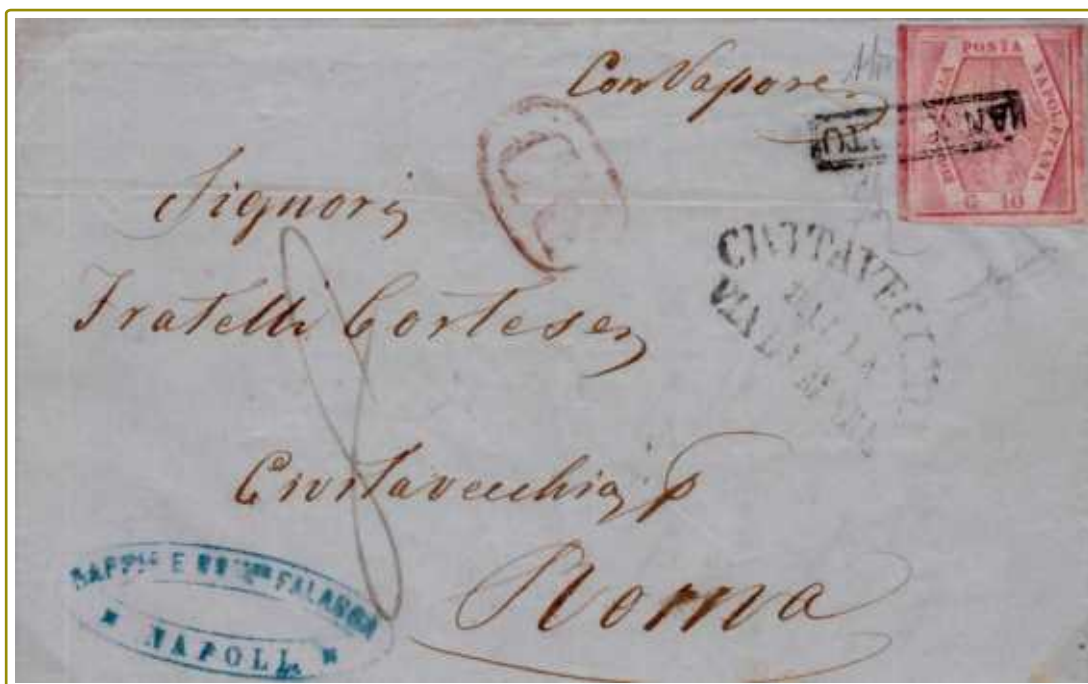 Con Vapore
POSTA NAPOLETANA
G 10
ANNULLATO
Signori
Fratelli Cortese
CIVITAVECCHIA
DALLA
VIA DI MARE
8
Civitavecchia p
Roma
E
FALANGA
NAPOLI